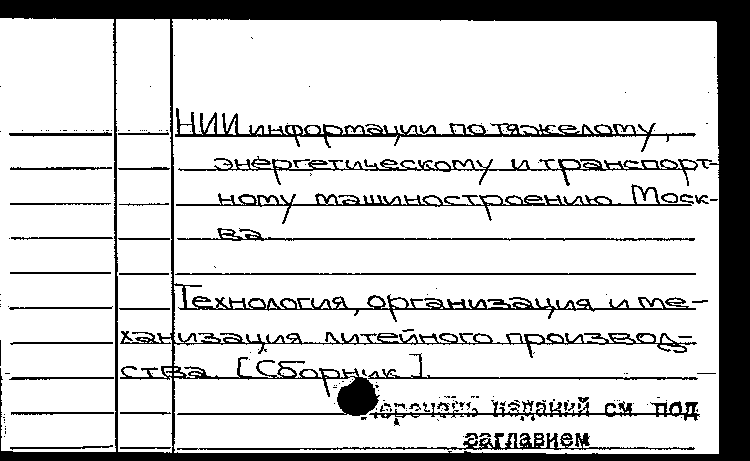 НИИ информации по тяжелому,
энергетическому и транспорт-
ному машиностроению. Моск-
ва.
Технология, организация и ме-
ханизация литейного производ-
ства. [Сборник].
Перечень изданий см. под
заглавием